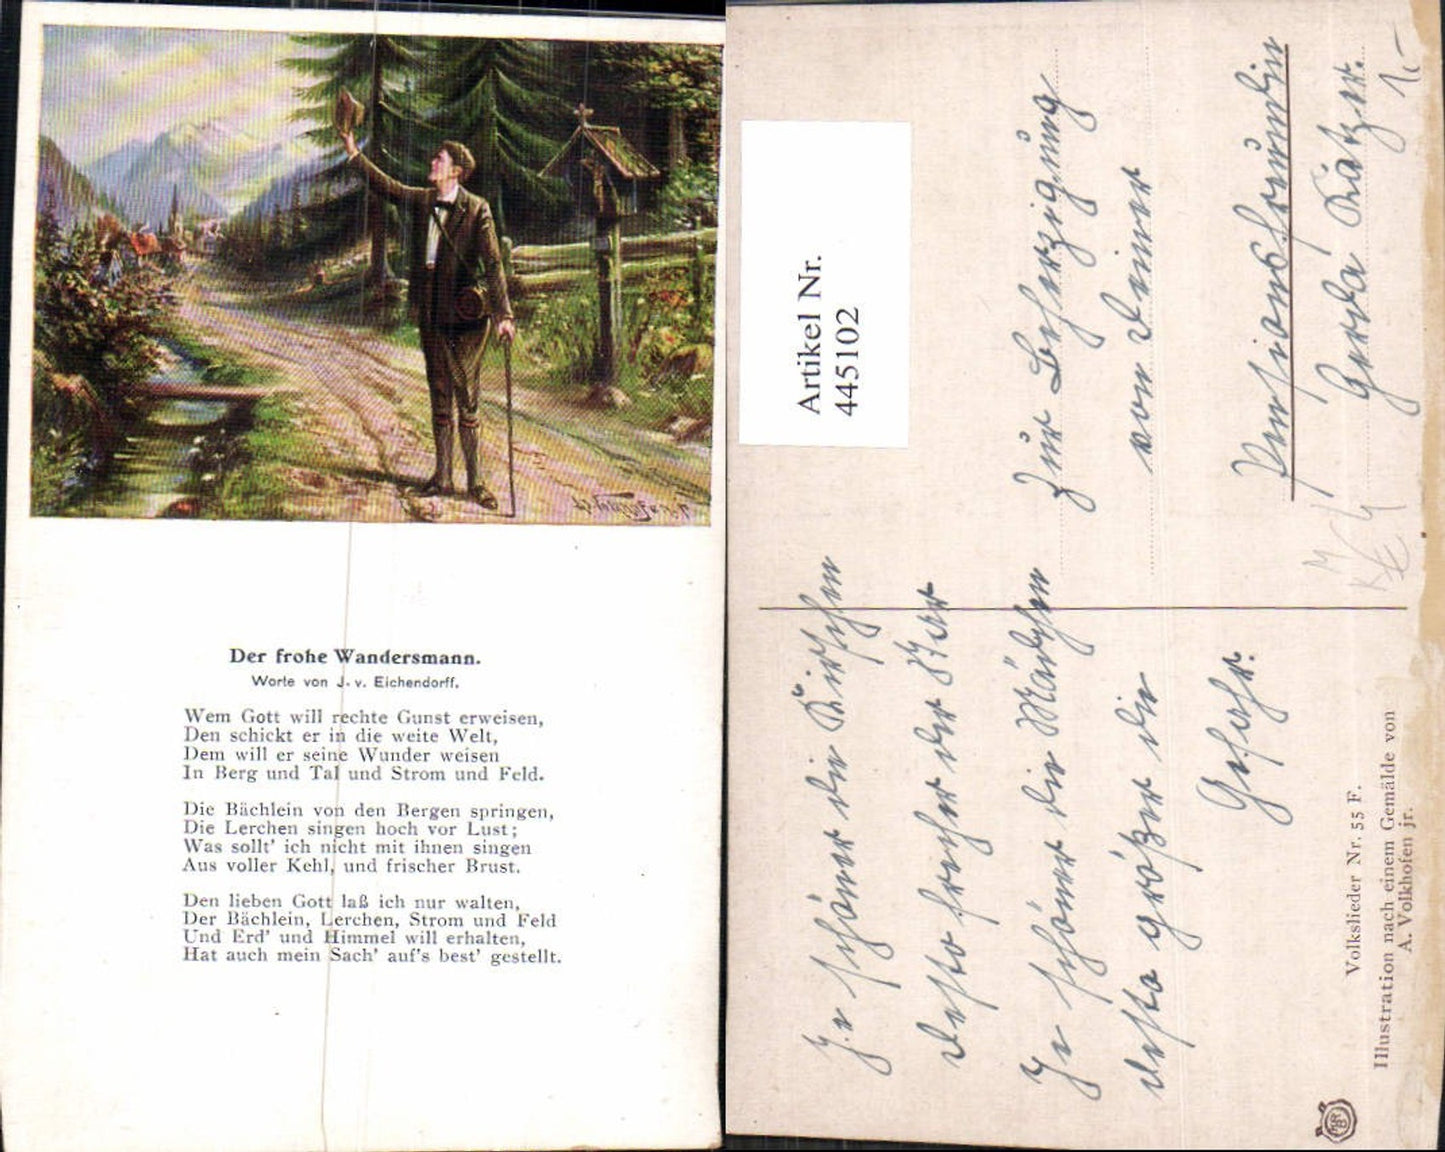 A. Volkhofen jr.
Der frohe Wandersmann.
Worte von J. v. Eichendorff.
Wem Gott will rechte Gunst erweisen,
Den schickt er in die weite Welt,
Dem will er seine Wunder weisen
In Berg und Tal und Strom und Feld.
Die Bächlein von den Bergen springen,
Die Lerchen singen hoch vor Lust;
Was sollt' ich nicht mit ihnen singen
Aus voller Kehl, und frischer Brust.
Den lieben Gott laß ich nur walten,
Der Bächlein, Lerchen, Strom und Feld
Und Erd' und Himmel will erhalten,
Hat auch mein Sach' auf's best' gestellt.
Artikel Nr.
445102
Je schöner die Kirschen
desto frecher der Star
Je schöner die Mädchen
desto größer die
Gefahr.
Zur Beherzigung
von Deiner
Pensionsfreundin
Gerda Kätzer.
1.-
Volkslieder Nr. 55 F.
Illustration nach einem Gemälde von
A. Volkhofen jr.